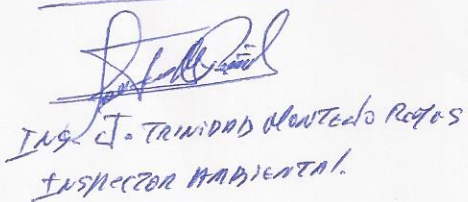 ING. J. TRINIDAD MONTEJO REYES
INSPECTOR AMBIENTAL.